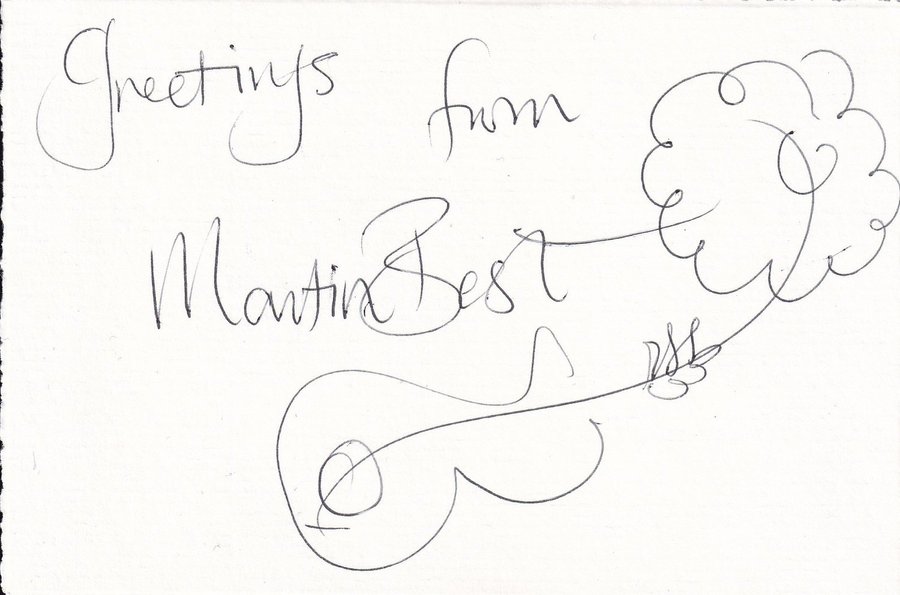 Greetings from
Martin Best